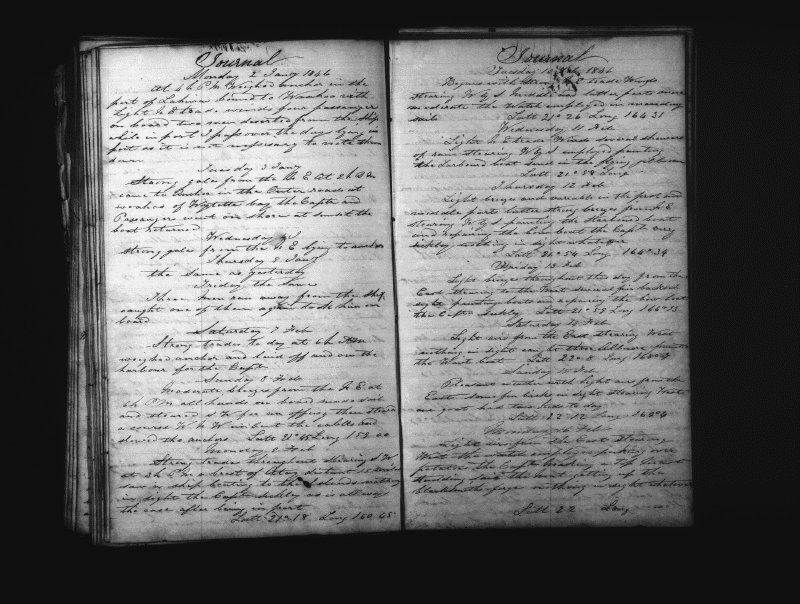 Journal
Monday 2 Jany 1846
At 4 h P M Weighed anchor in the
port of Lahina bound to Woahoo with
light N E trades wands four passengers
on board two men deserted from the ship
while in port I pass over the days lying in
port as it is not necessary to write them
down
Tuesday 3 Jany
Strong gales from the N E At 2 h P M
came to anchor in the Outer roads at
bay the Captn and
Passengers went on shore at sunset the
boat returned
Wednesday
Strong gale from the N E lying to anchor
Thursday 5 Jany
the same as yesterday
Friday the Same
Three men run away from the ship
caught one of them again took him on
board
Saturday 7 Feb
Strong trades to day at 6 h
weighed anchor and laid off and on the
harbour for the Captn
Sunday 8 Feb
Moderate breeze from the N E at
h P M all hands on board made sail
and steered S W for an offing then steered
a course W N W unbent the cables and
stowed the anchors Latt 21°45 Long 159 00
Monday 9 Feb
Strong trades throughout Steering S W
at 3 h P M west of distant 15 miles
saw a ship beating to the Islands
in sight the Captn sickly as is allways
the case after being in port
Latt 21°18 Long 160 45
Journal
Tuesday 10 Feb 1846
Begins with Strong N E trade Winds
Steering W by S Middle and latter parts more
moderate the watch employed in mending
sails Latt 21°26 Long 164 31
Wednesday 11 Feb
Light N E trade Winds some showers
of rain Steering W by S employed painting
the Larboard boat bend in the flying jib boom
Latt 21°58 Long
Thursday 12 Feb
Light breezes and variable in the first and
middle parts latter strong breezes from N E
Steering W by S painting the Starboard boat
and repairing the bow boat the Captn very
sickly nothing in sight whatever
Latt 21°54 Long 164°34
Friday 13 Feb
Light breezes throughout this day from the
East steering to the West several fin backs in
sight painting boats and repairing the bow boat
the Captn Sickly Latt 21°59 Long 166°13
Saturday 14 Feb
Light airs from the East Steering West
nothing in sight except three Albicore painted
the Waist boat Latt 22°8 Long
Sunday 15 Feb
Pleasant weather with light airs from the
East some fin backs in sight Steering West
one goat had two kids to day
Latt 22°12 Long 168°4
Monday 16 Feb
Light airs from the East Steering
West the watch employed picking over
potatoes the Captn making a Top Gallant
Studding sail the boat fitting up the
blacksmiths forge nothing in sight whatever
Latt 22 Long